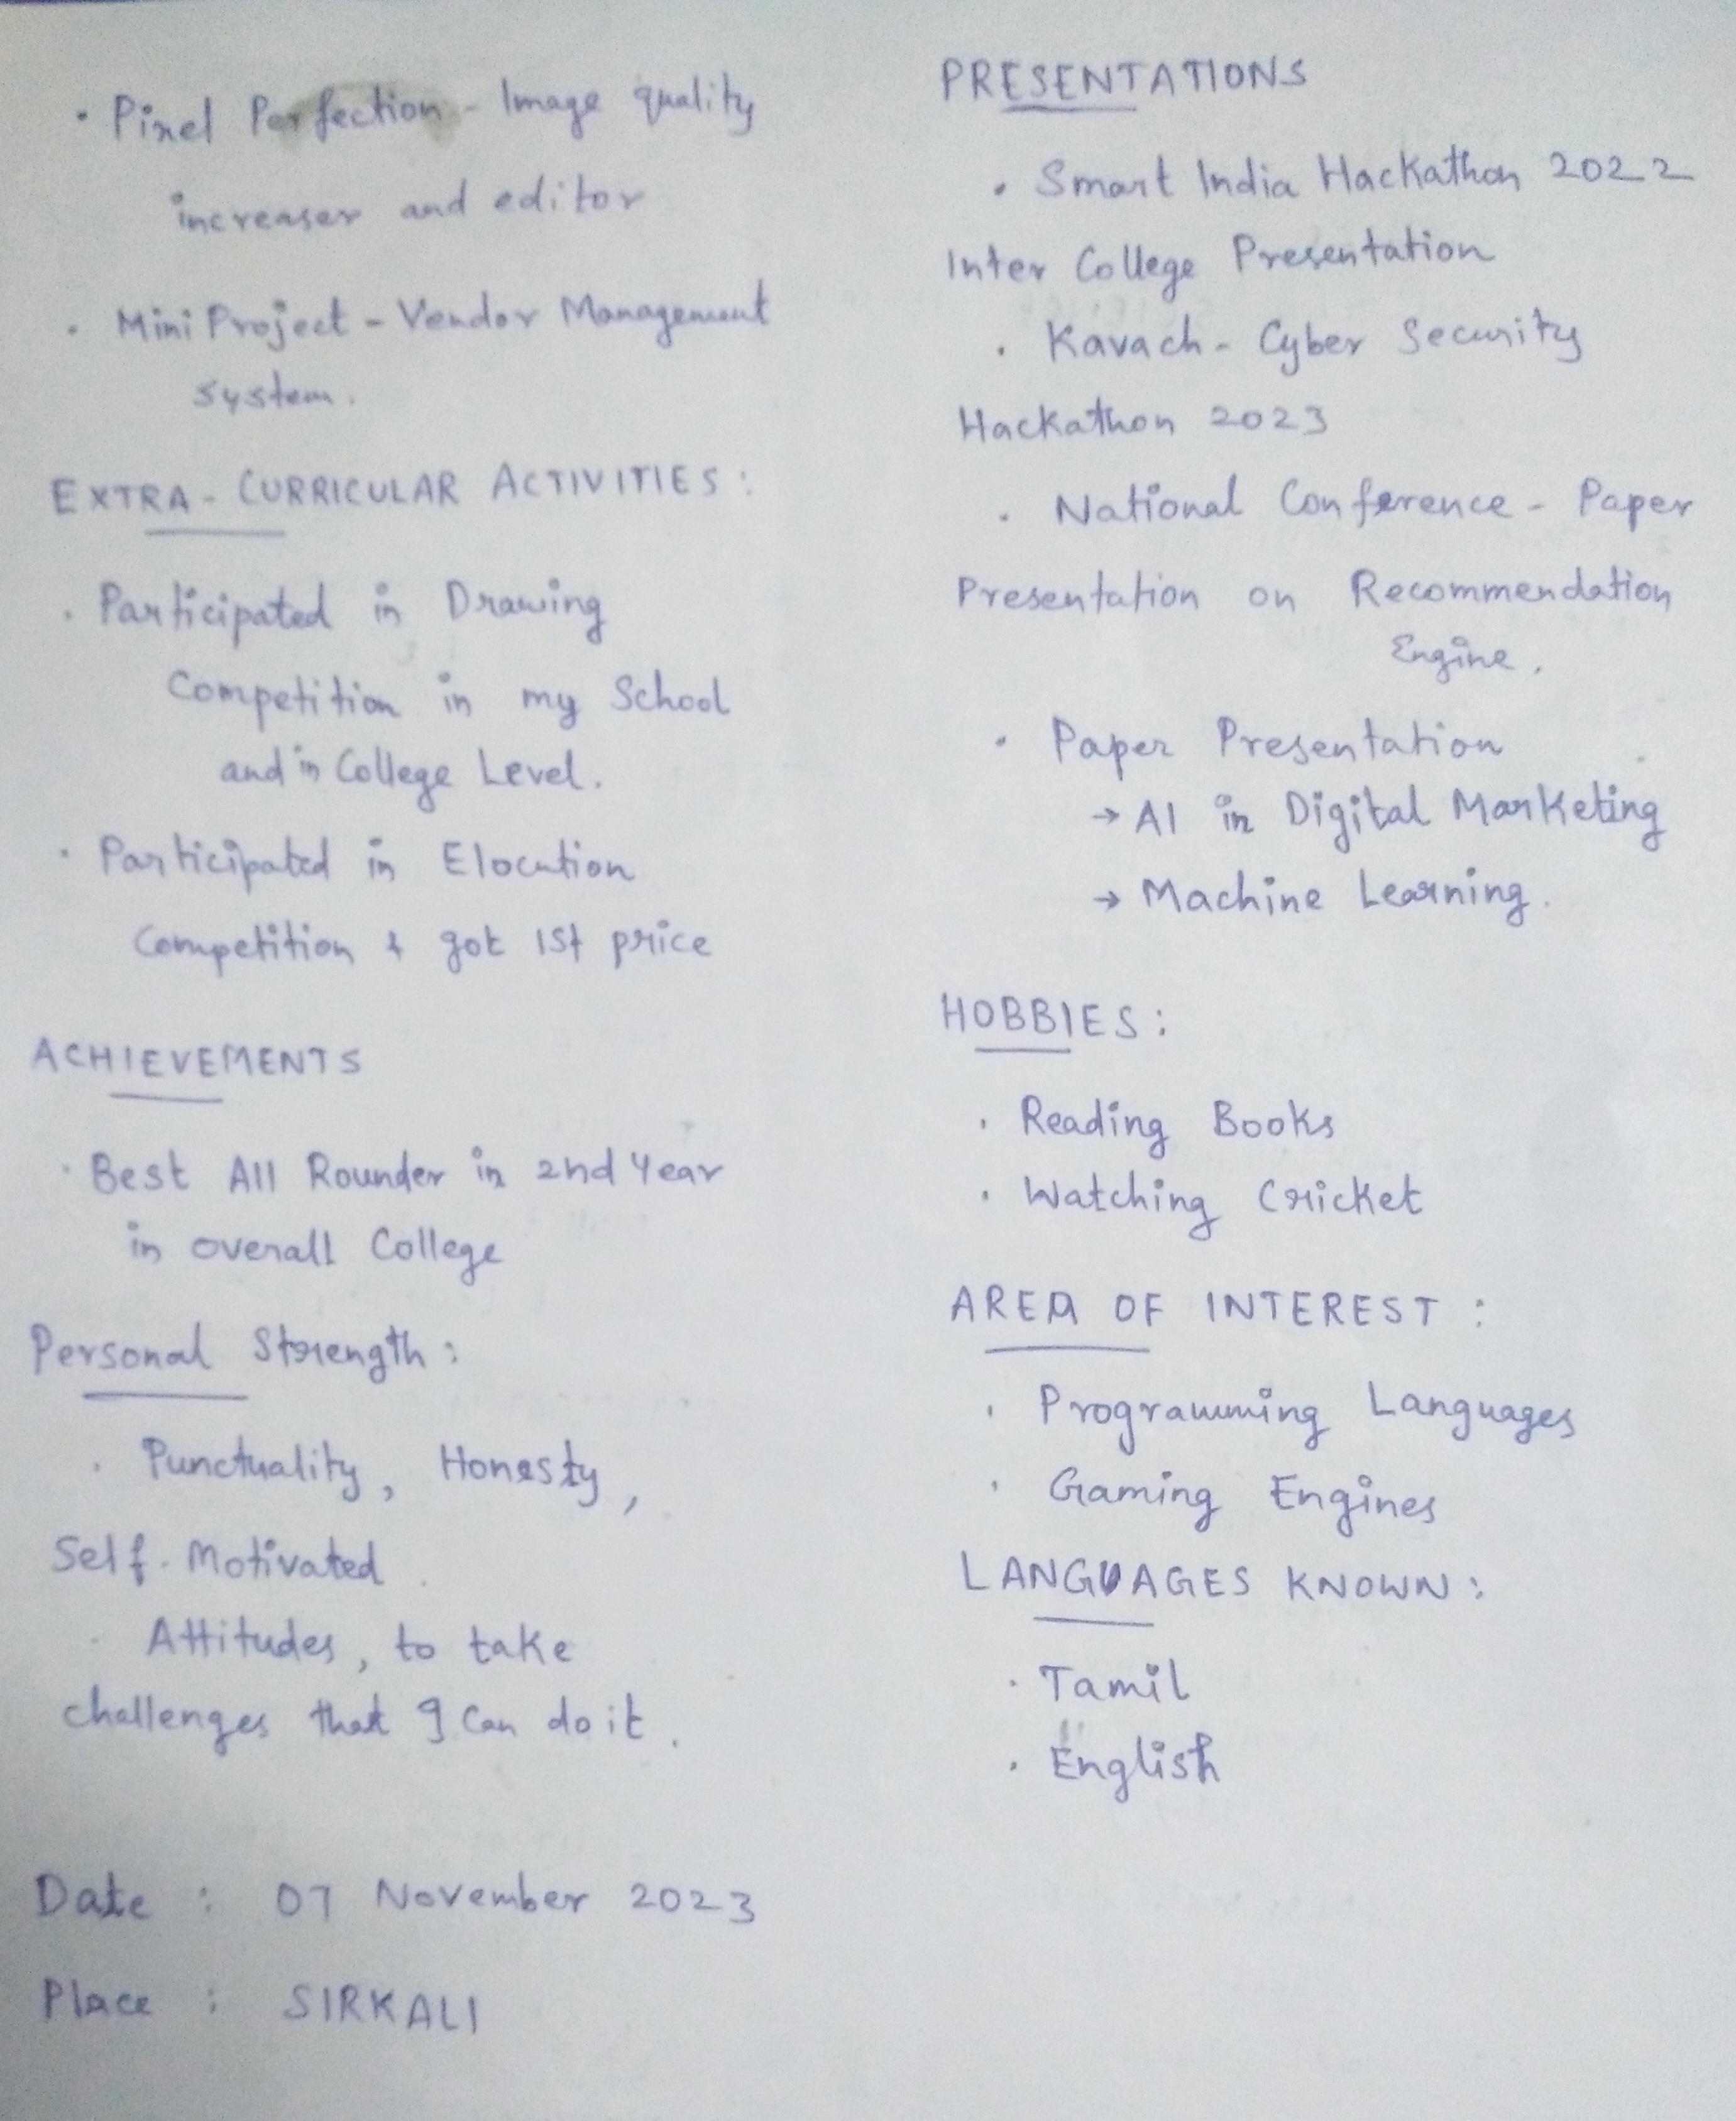 • Pixel Perfection - Image quality
increaser and editor
• Mini Project - Vendor Management
system.
EXTRA - CURRICULAR ACTIVITIES :
• Participated in Drawing
Competition in my School
and in College Level.
• Participated in Elocution
Competition & got 1st price
ACHIEVEMENTS
• Best All Rounder in 2nd Year
in overall College
Personal Strength :
• Punctuality, Honesty,
Self-Motivated.
• Attitudes, to take
challenges that I can do it.
Date : 07 November 2023
Place : SIRKALI
PRESENTATIONS
• Smart India Hackathon 2022
Inter College Presentation
• Kavach - Cyber Security
Hackathon 2023
• National Conference - Paper
Presentation on Recommendation
Engine.
• Paper Presentation
→ AI in Digital Marketing
→ Machine Learning.
HOBBIES :
• Reading Books
• Watching Cricket
AREA OF INTEREST :
• Programming Languages
• Gaming Engines
LANGUAGES KNOWN :
• Tamil
• English